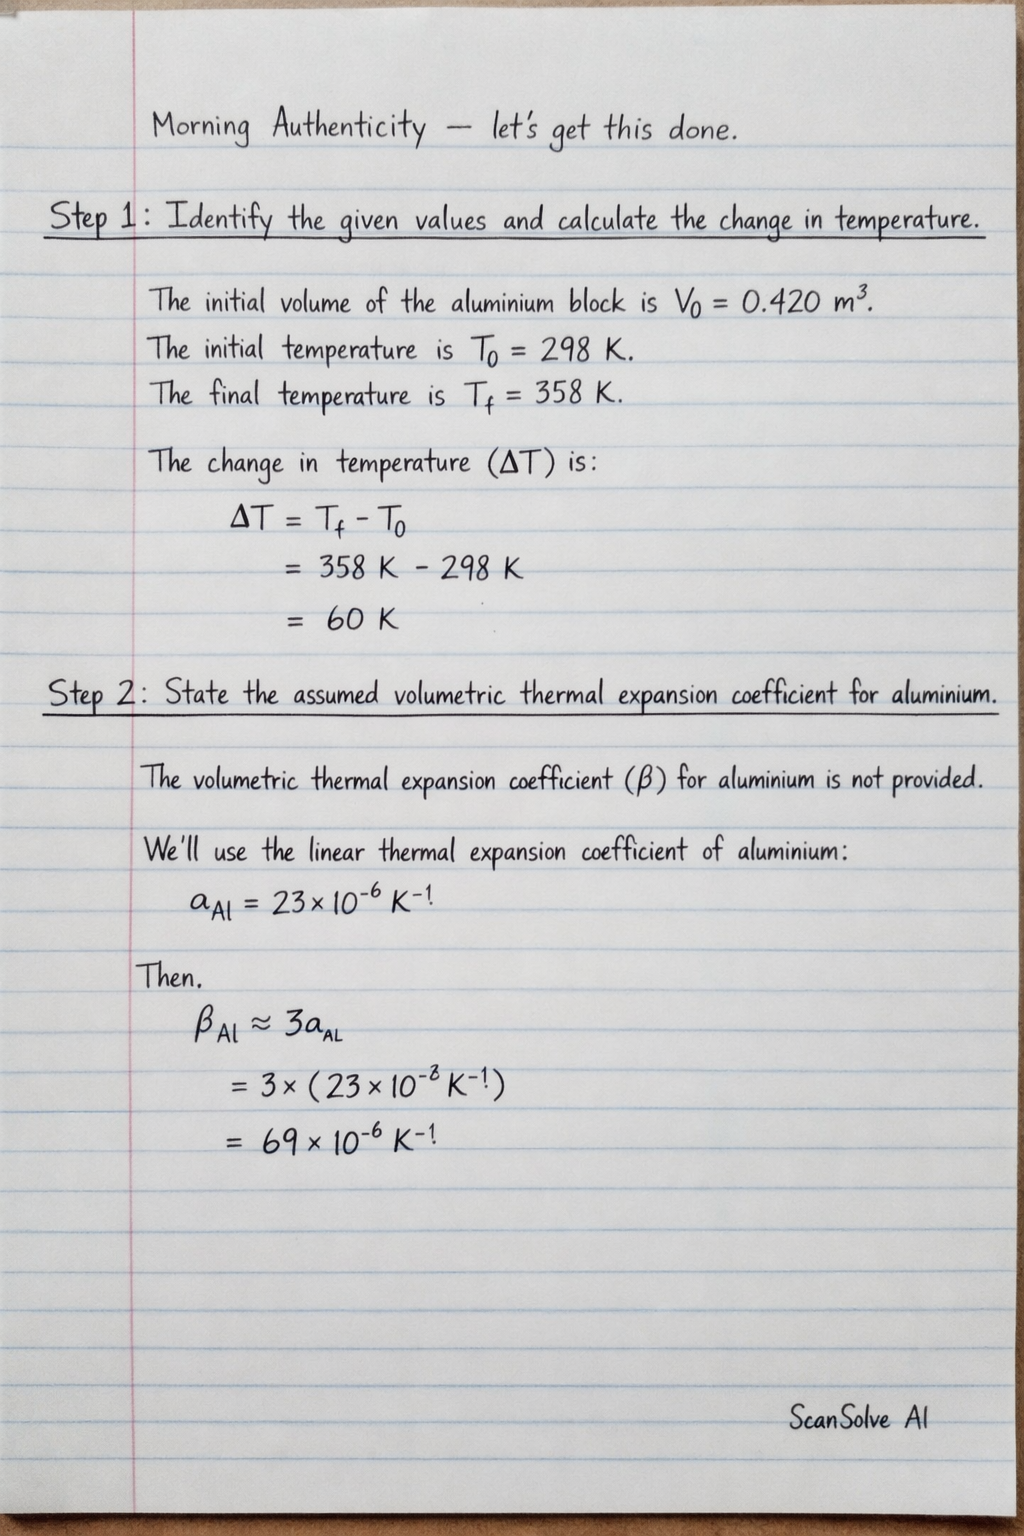 Morning Authenticity — let's get this done.
Step 1: Identify the given values and calculate the change in temperature.
The initial volume of the aluminium block is V₀ = 0.420 m³.
The initial temperature is T₀ = 298 K.
The final temperature is T_f = 358 K.
The change in temperature (ΔT) is:
ΔT = T_f - T₀
= 358 K - 298 K
= 60 K
Step 2: State the assumed volumetric thermal expansion coefficient for aluminium.
The volumetric thermal expansion coefficient (β) for aluminium is not provided.
We'll use the linear thermal expansion coefficient of aluminium:
a_Al = 23 × 10⁻⁶ K⁻¹
Then.
β_Al ≈ 3a_AL
= 3 × (23 × 10⁻⁸ K⁻¹)
= 69 × 10⁻⁶ K⁻¹
ScanSolve AI